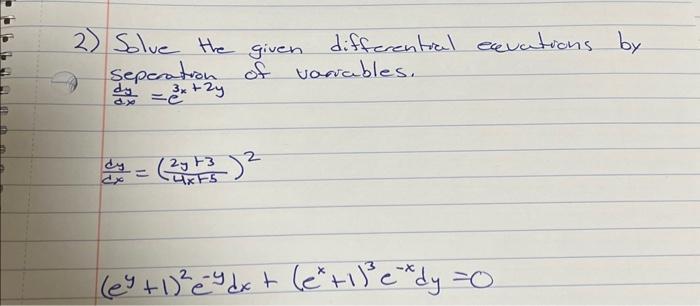 2) Solve the given differential eequations by
seperation of variables.
dy/dx = e^3x+2y
dy/dx = (2y+3/4x+5)^2
(e^y+1)^2 e^-y dx + (e^x+1)^3 e^-x dy = 0